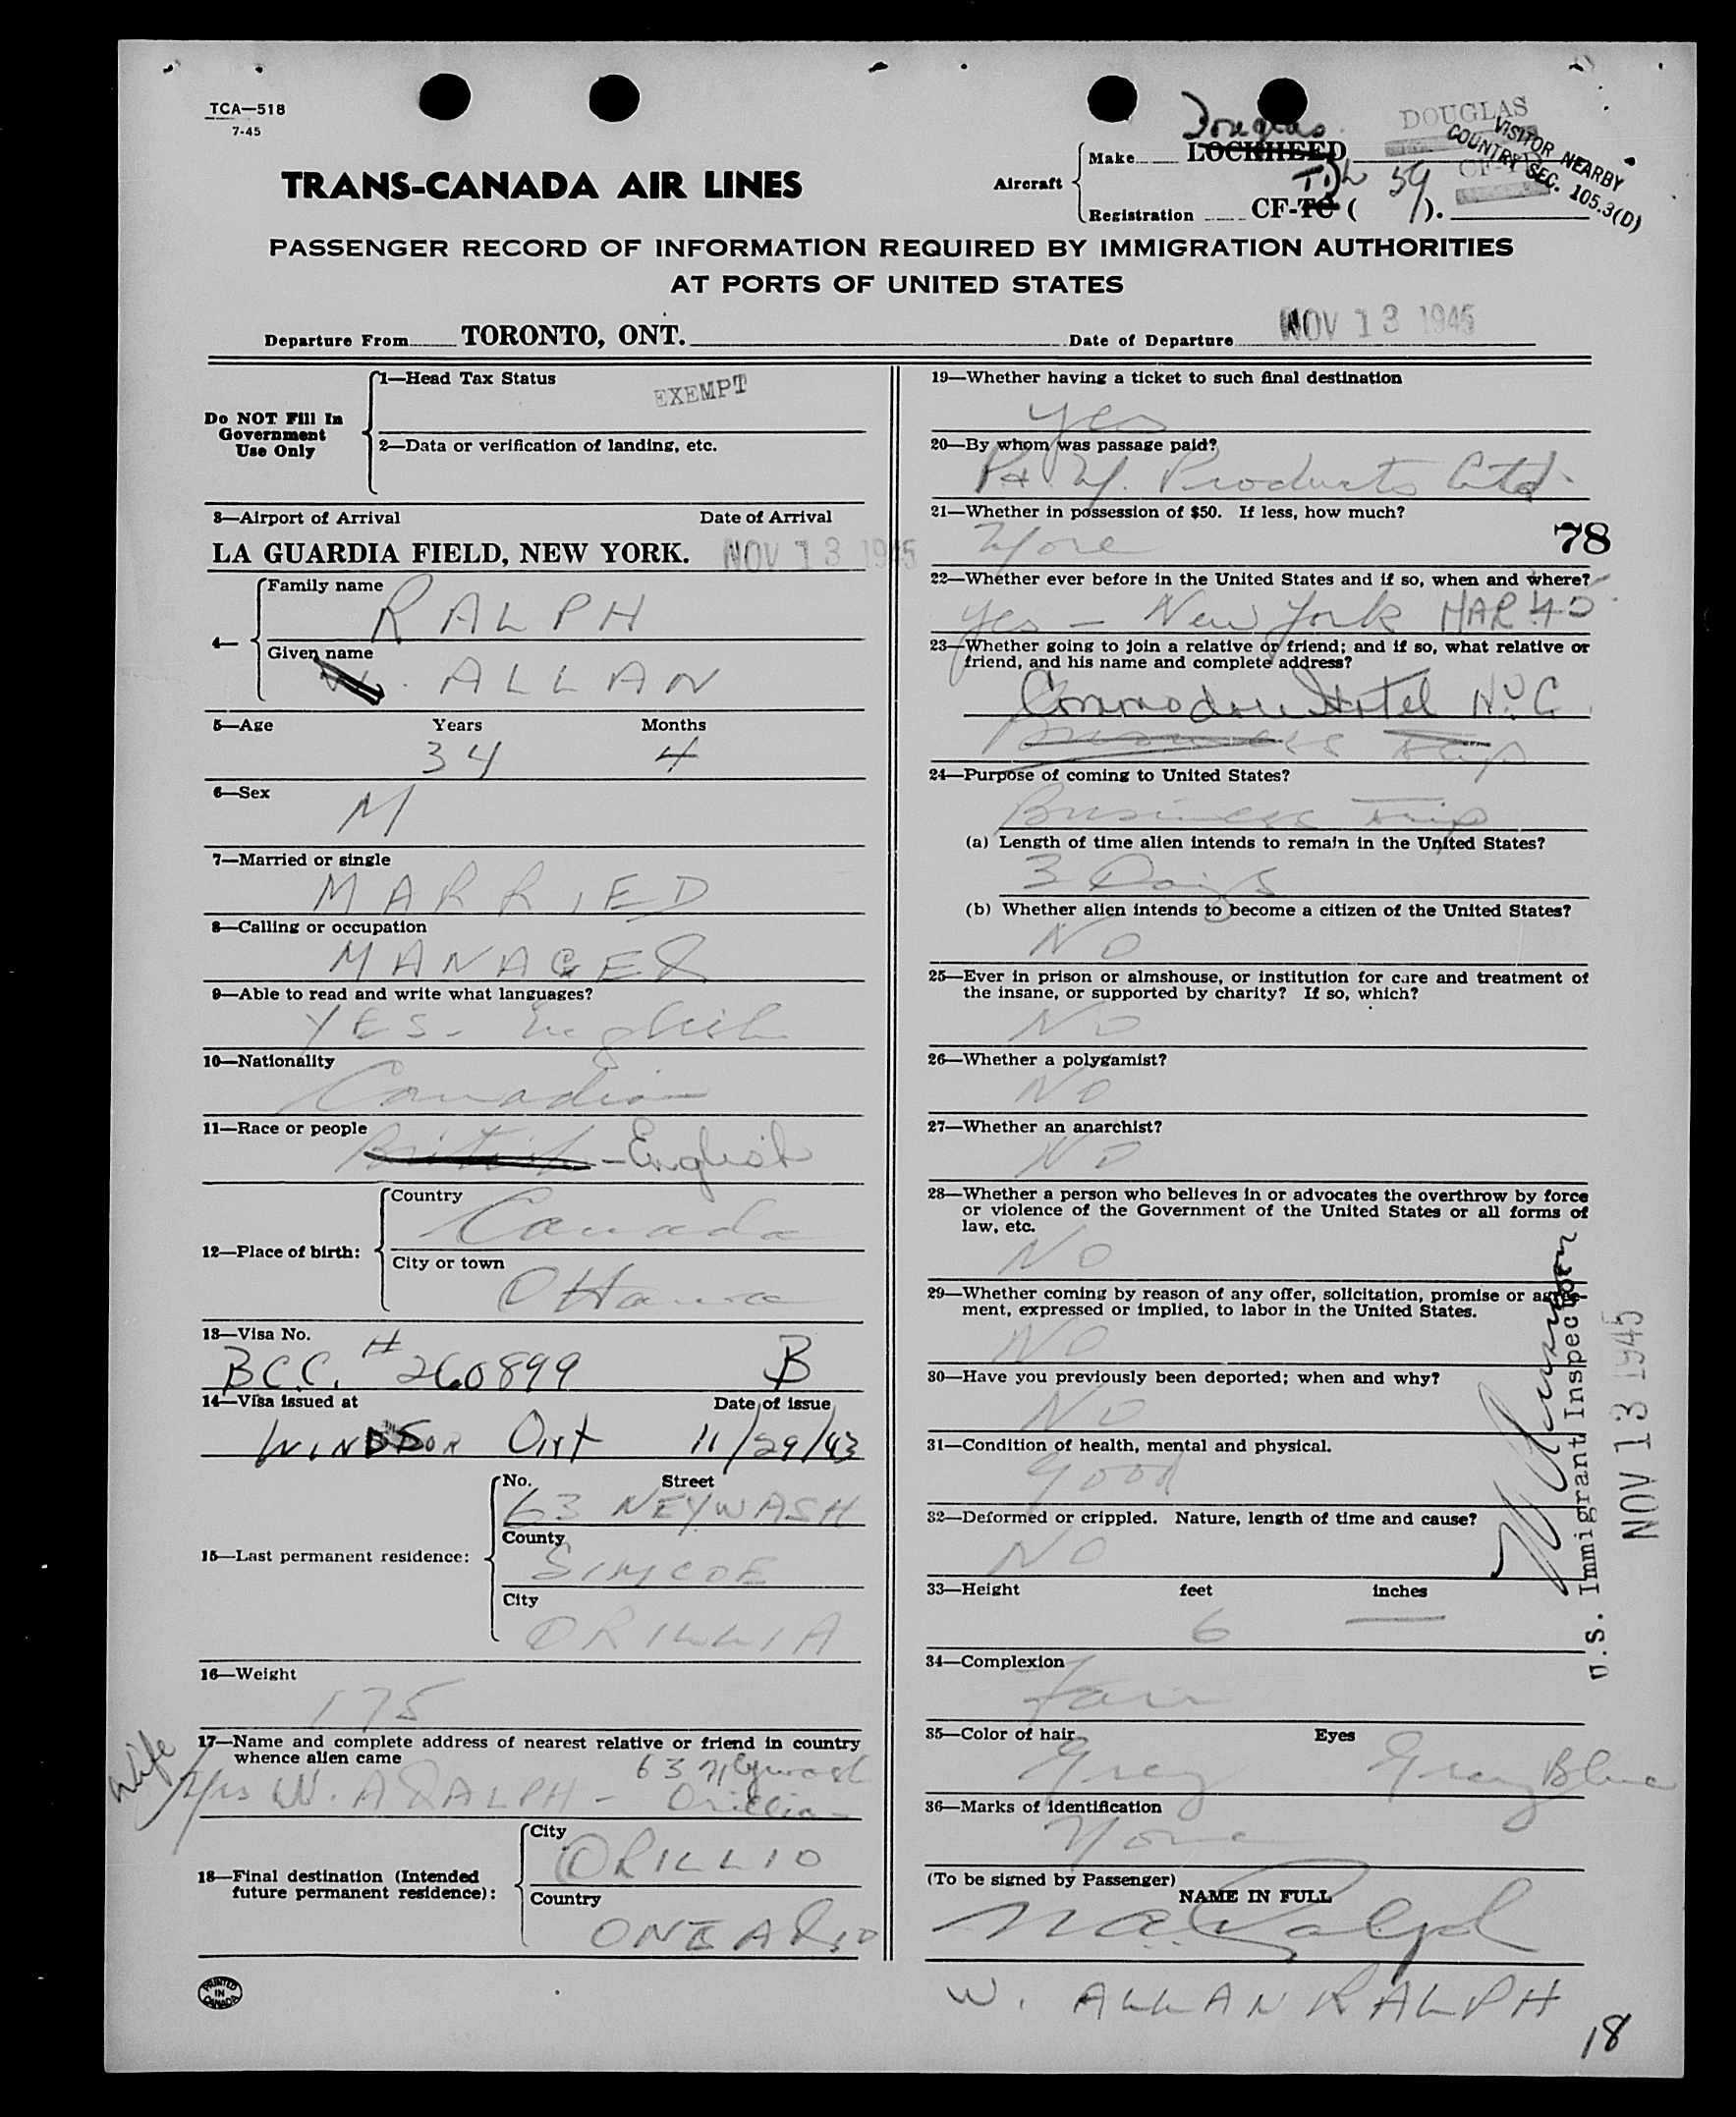 TCA—518
7-45
TRANS-CANADA AIR LINES
Aircraft
Make
Douglas
LOCKHEED
DOUGLAS
Registration
CF-TC ( 59 ).
VISITOR NEARBY
COUNTRY SEC. 105.3(D)
PASSENGER RECORD OF INFORMATION REQUIRED BY IMMIGRATION AUTHORITIES
AT PORTS OF UNITED STATES
Departure From TORONTO, ONT.
Date of Departure NOV 13 1945
Do NOT Fill In
Government
Use Only
1—Head Tax Status
EXEMPT
2—Data or verification of landing, etc.
3—Airport of Arrival Date of Arrival
LA GUARDIA FIELD, NEW YORK. NOV 13 1945
4—
Family name
RALPH
Given name
W. ALLAN
5—Age Years Months
34 4
6—Sex
M
7—Married or single
MARRIED
8—Calling or occupation
MANAGER
9—Able to read and write what languages?
YES - English
10—Nationality
Canadian
11—Race or people
British - English
12—Place of birth:
Country
Canada
City or town
Ottawa
13—Visa No.
BCC. # 260899 B
14—Visa issued at Date of issue
WINDSOR Ont 11/29/43
15—Last permanent residence:
No. Street
63 NEYWASH
County
SIMCOE
City
ORILLIA
16—Weight
175
17—Name and complete address of nearest relative or friend in country
whence alien came
63 Neywash
wife
Mrs W. A RALPH - Orillia -
18—Final destination (Intended
future permanent residence):
City
ORILLIO
Country
ONTARIO
PRINTED
IN
CANADA
19—Whether having a ticket to such final destination
Yes
20—By whom was passage paid?
Products Ltd.
21—Whether in possession of $50. If less, how much?
More
78
22—Whether ever before in the United States and if so, when and where?
Yes - New York MAR 45
23—Whether going to join a relative or friend; and if so, what relative or
friend, and his name and complete address?
Commodore Hotel N.Y.C.
Business trip
24—Purpose of coming to United States?
Business Trip
(a) Length of time alien intends to remain in the United States?
3 Days
(b) Whether alien intends to become a citizen of the United States?
NO
25—Ever in prison or almshouse, or institution for care and treatment of
the insane, or supported by charity? If so, which?
NO
26—Whether a polygamist?
NO
27—Whether an anarchist?
NO
28—Whether a person who believes in or advocates the overthrow by force
or violence of the Government of the United States or all forms of
law, etc.
NO
29—Whether coming by reason of any offer, solicitation, promise or agree-
ment, expressed or implied, to labor in the United States.
NO
30—Have you previously been deported; when and why?
NO
31—Condition of health, mental and physical.
Good
32—Deformed or crippled. Nature, length of time and cause?
NO
U.S. Immigrant Inspector
NOV 13 1945
33—Height feet inches
6 —
34—Complexion
Fair
35—Color of hair Eyes
Grey Grey Blue
36—Marks of identification
None
(To be signed by Passenger)
NAME IN FULL
W. A. Ralph
W. ALLAN RALPH
18